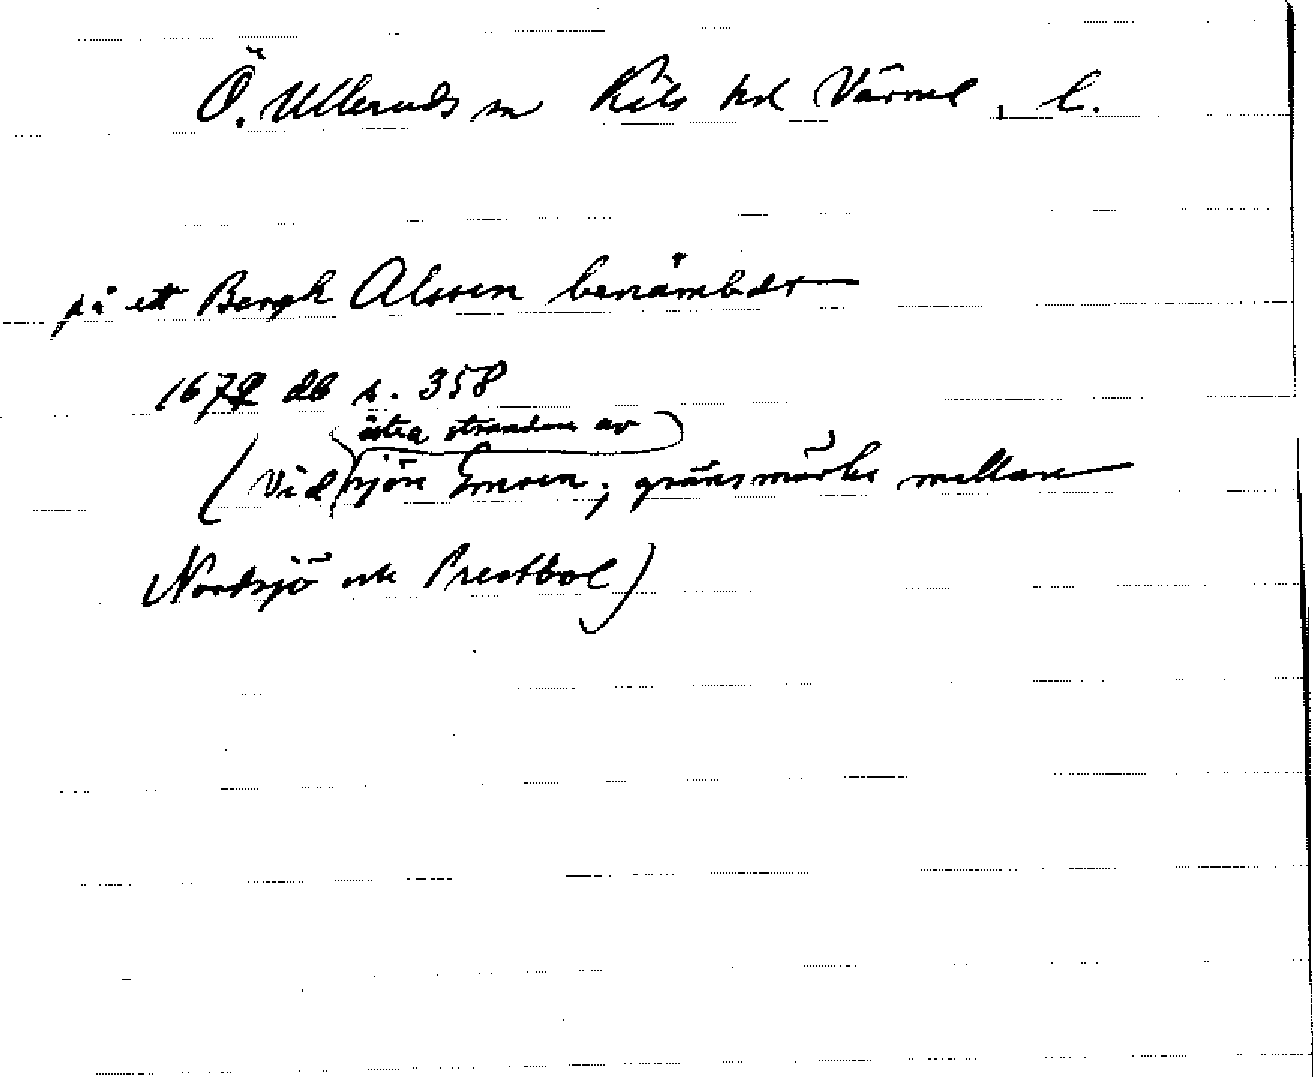 Ö. Ulleruds sn Kils hd Värml. l.
på ett Bergh Alsven benämbdt
167 db s. 358
östra stranden av
(vid sjön Emsen; gränsmärke mellan
Nordsjö och Prestbol)